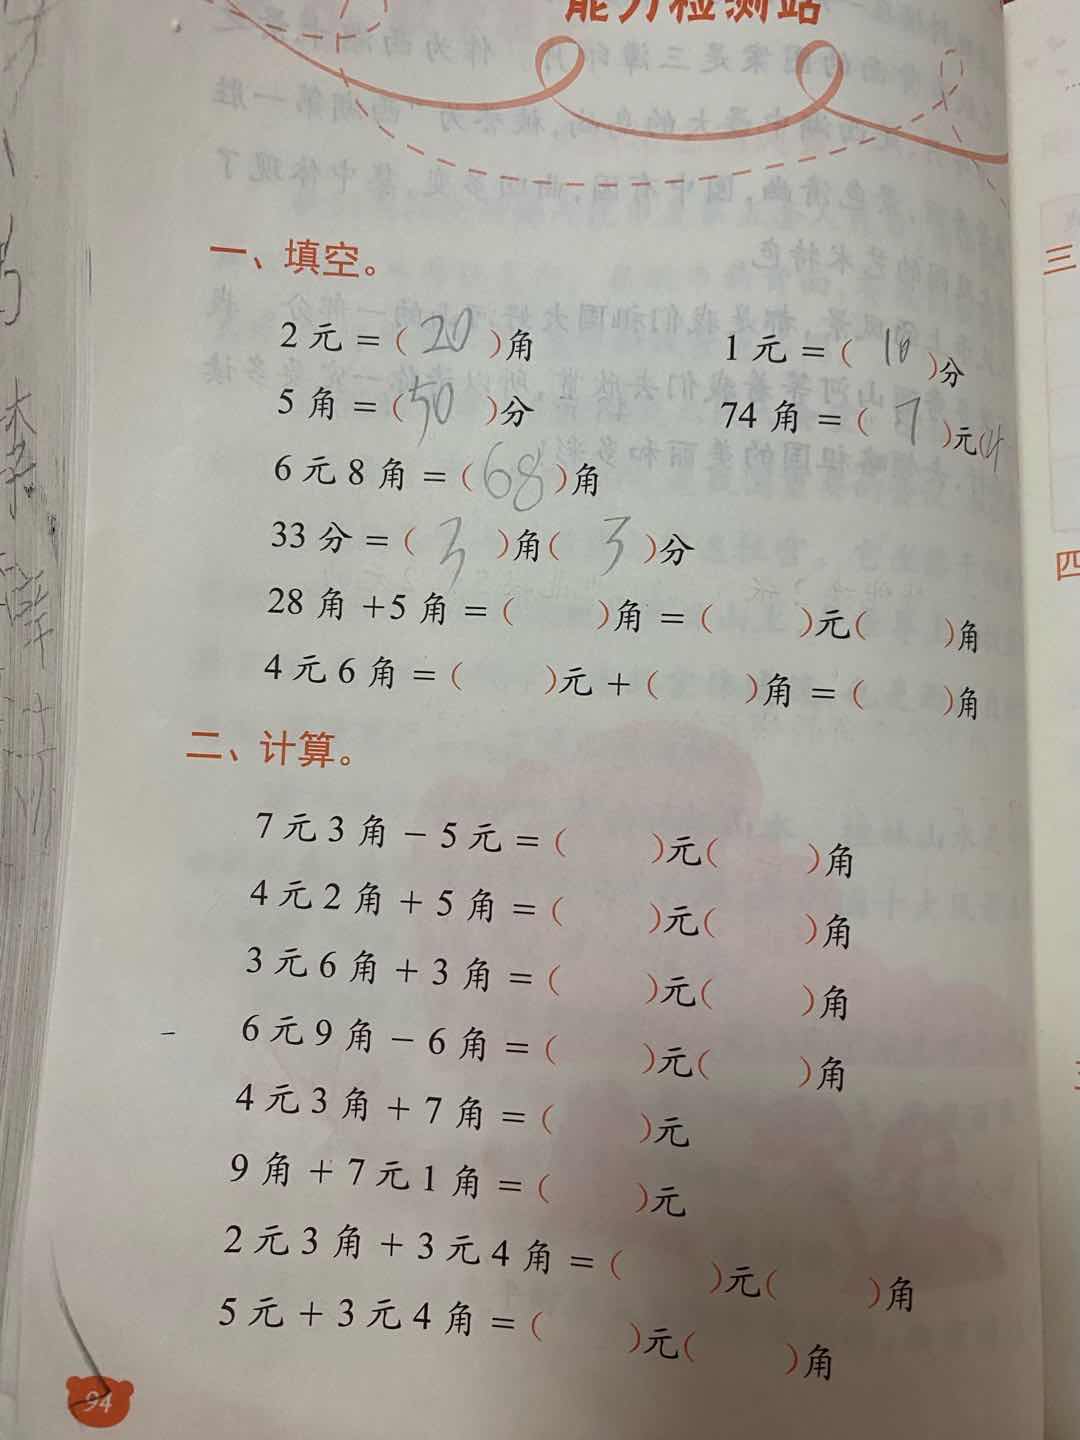 能力检测站
一、填空。
2元=(20)角 1元=(10)分
5角=(50)分 74角=(7)元(4
6元8角=(68)角
33分=(3)角(3)分
28角+5角=( )角=( )元( )角
4元6角=( )元+( )角=( )角
二、计算。
7元3角-5元=( )元( )角
4元2角+5角=( )元( )角
3元6角+3角=( )元( )角
6元9角-6角=( )元( )角
4元3角+7角=( )元
9角+7元1角=( )元
2元3角+3元4角=( )元( )角
5元+3元4角=( )元( )角
94
三
四